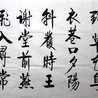 野草花烏
衣巷口夕陽
斜舊時王
謝堂前燕
飛入尋常